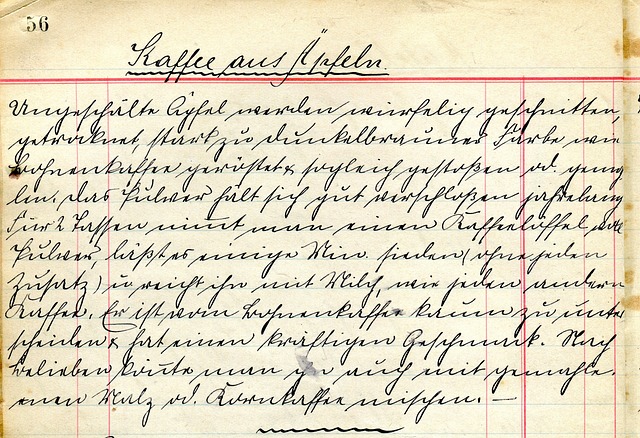 56
Kaffee aus Äpfeln.
Ungeschälte Äpfel werden würfelig geschnitten,
getroknet, stark zu dunkelbrauner Farbe wie
Bohnenkaffee geröstet & sogleich gestoßen od. gemah
len. Das Pulver hält sich gut verschloßen jahrelang
Für 2 Tassen nimt man einen Kaffeelöffel voll
Pulver, läßt es einige Min. sieden (ohne jeden
Zusatz) u reicht ihn mit Milch, wie jeden andern
Kaffee. Er ist vom Bohnenkaffee kaum zu unter
scheiden & hat einen kräftigen Geschmack. Nach
Belieben könte man ihn auch mit gemahle-
enen Malz od. Kornkaffee mischen. —